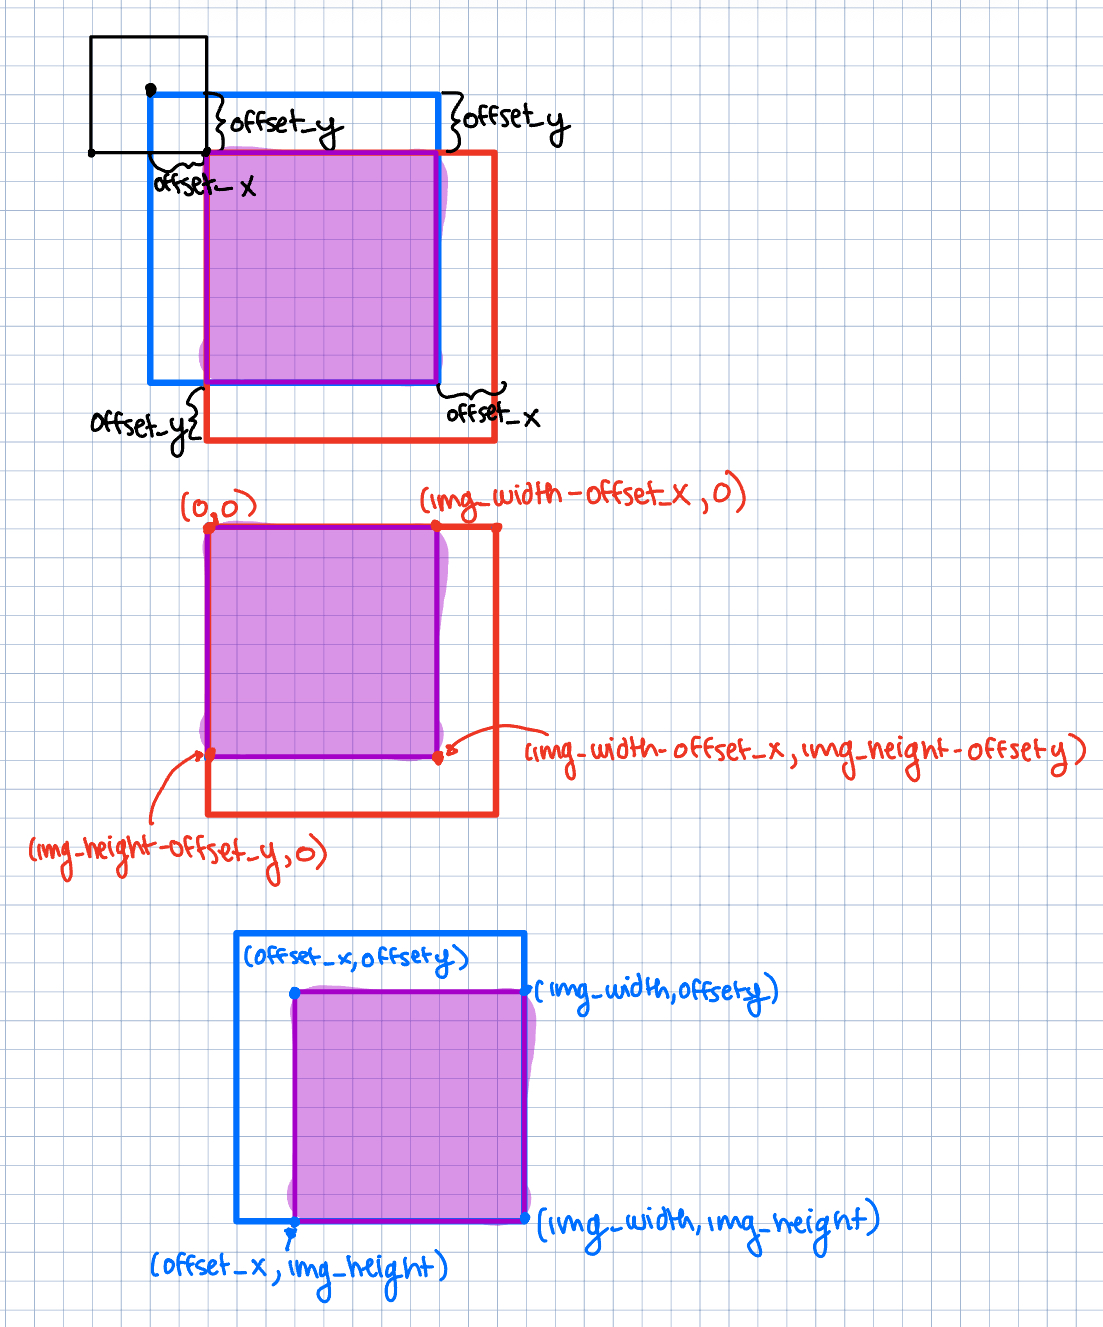 offset_y
offset_y
offset_x
offset_x
offset_y
(0,0)
(img_width-offset_x,0)
(img_width-offset_x,img_height-offsety)
(img_height-offset_y,0)
(offset_x,offsety)
(img_width,offsety)
(img_width,img_height)
(offset_x,img_height)